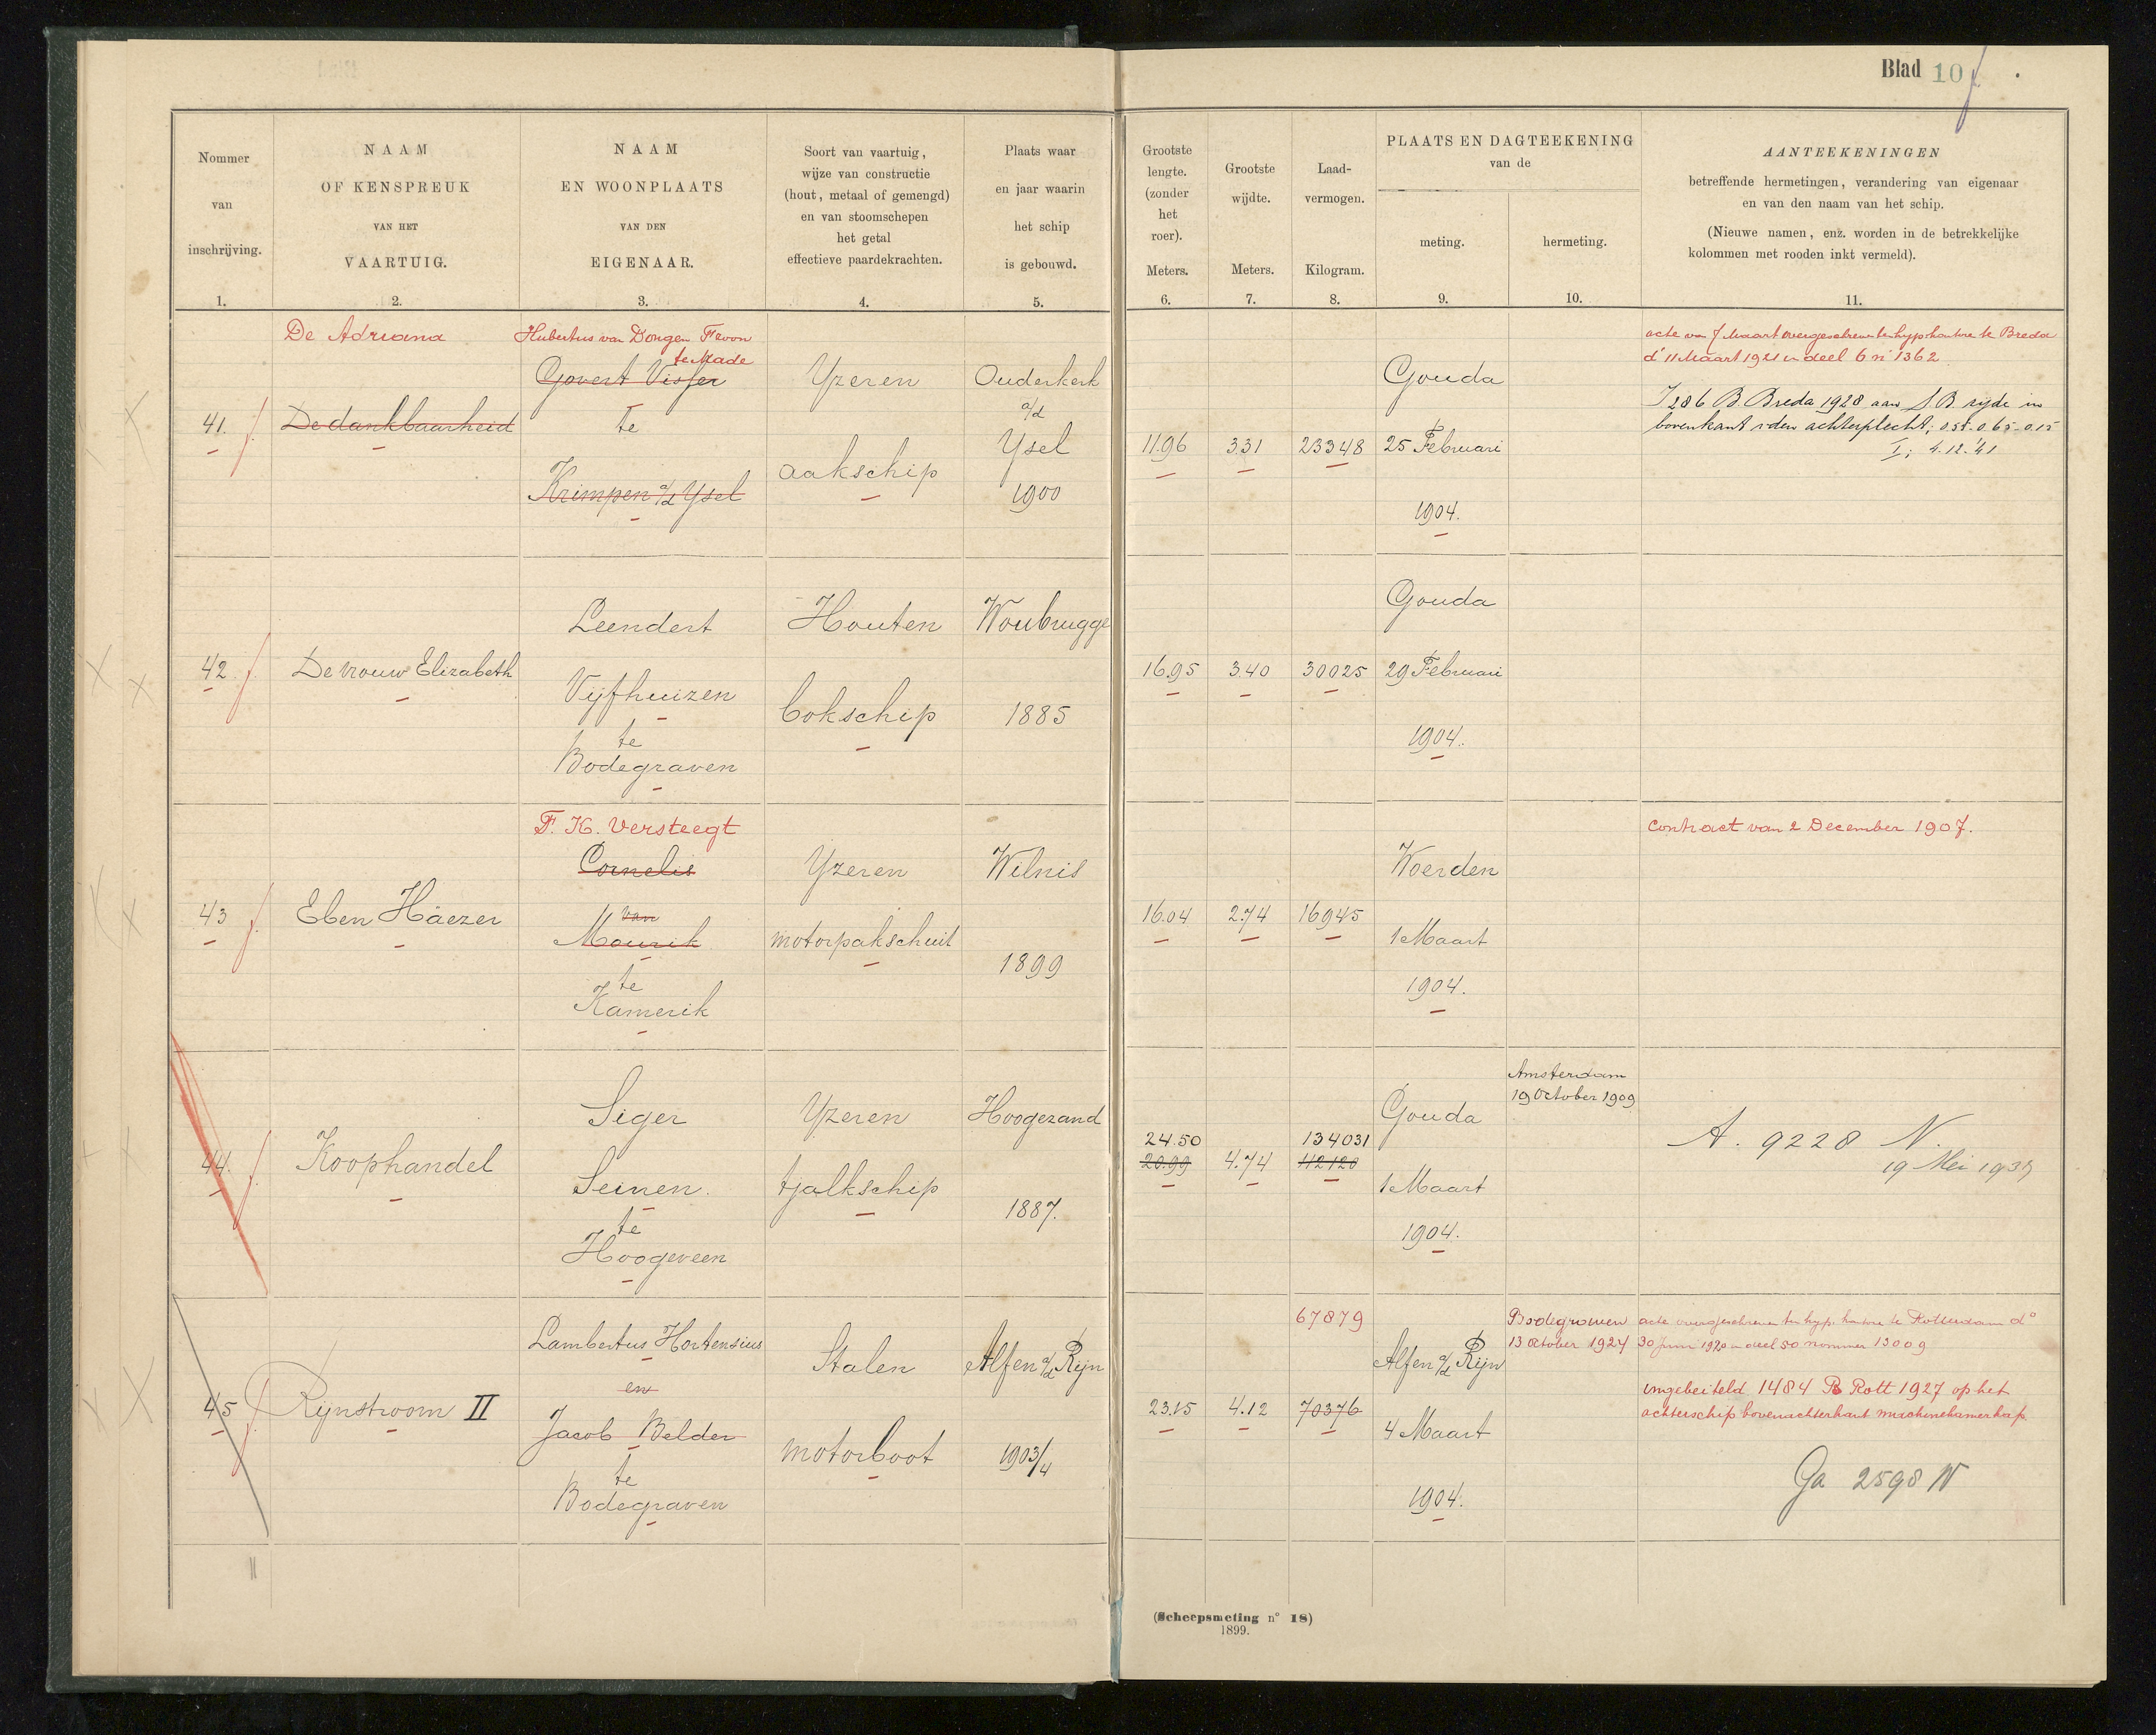 Blad 10
Nommer
van
inschrijving.
1.
NAAM
OF KENSPREUK
VAN HET
VAARTUIG.
2.
NAAM
EN WOONPLAATS
VAN DEN
EIGENAAR.
3.
Soort van vaartuig,
wijze van constructie
(hout, metaal of gemengd)
en van stoomschepen
het getal
effectieve paardekrachten.
4.
Plaats waar
en jaar waarin
het schip
is gebouwd.
5.
Grootste
lengte.
(zonder
het
roer).
Meters.
6.
Grootste
wijdte.
Meters.
7.
Laad-
vermogen.
Kilogram.
8.
PLAATS EN DAGTEEKENING
van de
meting.
9.
hermeting.
10.
AANTEEKENINGEN
betreffende hermetingen, verandering van eigenaar
en van den naam van het schip.
(Nieuwe namen, enz. worden in de betrekkelijke
kolommen met rooden inkt vermeld).
11.
41.
De Adriana
De dankbaarheid
Hubertus van Dongen
te Made
Govert Visser
te
Krimpen a/d Ysel
Yzeren
aakschip
Ouderkerk
a/d
Ysel
1900
11.96
3.31
23348
Gouda
25 Februari
1904.
acte van 7 Maart overgeschreven ten hyp. kantore te Breda
d° 11 Maart 1921 in deel 6 n° 1362
I 286 B. Breda 1928 aan S.B. zijde in
bovenkant v. den achterplecht; 0.55-0.65-0.15
I; 4.12.'41
42.
De vrouw Elizabeth
Leendert
Vijfhuizen
te
Bodegraven
Houten
bokschip
Woubrugge
1885
16.95
3.40
30025
Gouda
29 Februari
1904.
43
Eben Häezer
F. K. Versteegt
Cornelis
van
Mourik
te
Kamerik
Yzeren
motorpakschuit
Wilnis
1899
16.04
2.74
16945
Woerden
1 Maart
1904.
Contract van 2 December 1907.
44.
Koophandel
Siger
Seinen.
te
Hoogeveen
Yzeren
tjalkschip
Hoogezand
1887.
24.50
20.99
4.74
134031
112120
Gouda
1 Maart
1904.
Amsterdam
19 October 1909
A. 9228 N.
19 Mei 1939
45
Rijnstroom II
Lambertus Hortensius
en
Jacob Belder
te
Bodegraven
Stalen
motorboot
Alfen a/d Rijn
1903/4
23.15
4.12
67879
70376
Alfen a/d Rijn
4 Maart
1904.
Bodegraven
13 October 1924
acte overgeschreven ten hyp. kantore te Rotterdam d°
30 Juni 1920 in deel 50 nommer 13009
ingebeiteld 1484 B Rott 1927 op het
achterschip bovenachterkant machinekamerkap
Ga 2598 N
(Scheepsmeting n° 18)
1899.